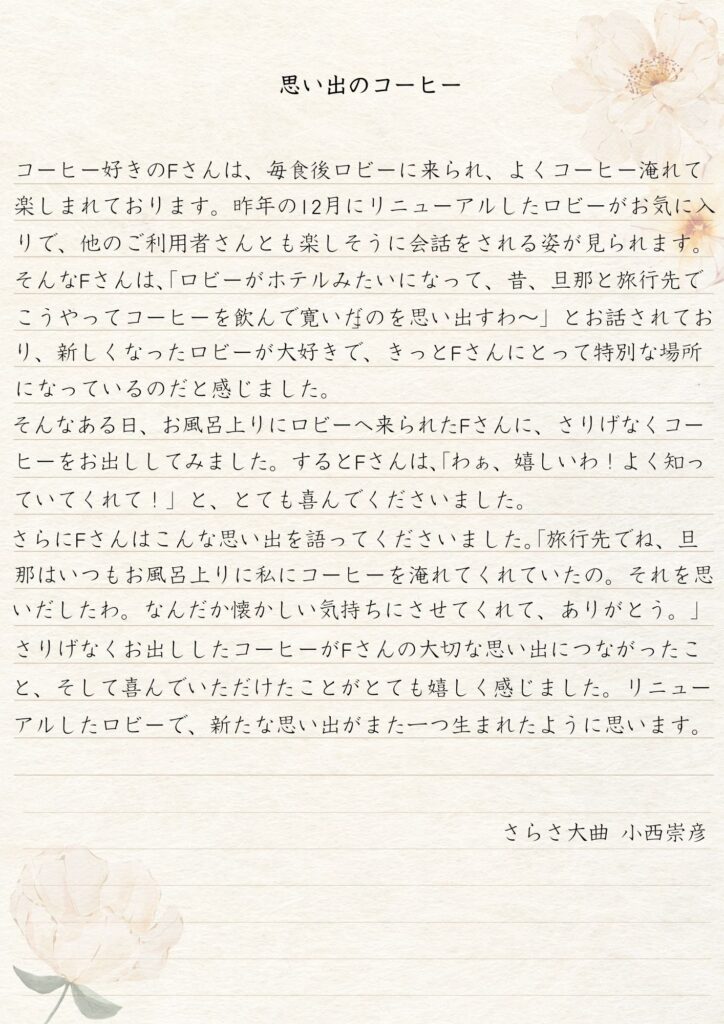 思い出のコーヒー
コーヒー好きのFさんは、毎食後ロビーに来られ、よくコーヒー淹れて
楽しまれております。昨年の12月にリニューアルしたロビーがお気に入
りで、他のご利用者さんとも楽しそうに会話をされる姿が見られます。
そんなFさんは、「ロビーがホテルみたいになって、昔、旦那と旅行先で
こうやってコーヒーを飲んで寛いだのを思い出すわ〜」とお話されてお
り、新しくなったロビーが大好きで、きっとFさんにとって特別な場所
になっているのだと感じました。
そんなある日、お風呂上りにロビーへ来られたFさんに、さりげなくコー
ヒーをお出ししてみました。するとFさんは、「わぁ、嬉しいわ！よく知っ
ていてくれて！」と、とても喜んでくださいました。
さらにFさんはこんな思い出を語ってくださいました。「旅行先でね、旦
那はいつもお風呂上りに私にコーヒーを淹れてくれていたの。それを思
いだしたわ。なんだか懐かしい気持ちにさせてくれて、ありがとう。」
さりげなくお出ししたコーヒーがFさんの大切な思い出につながったこ
と、そして喜んでいただけたことがとても嬉しく感じました。リニュー
アルしたロビーで、新たな思い出がまた一つ生まれたように思います。
さらさ大曲 小西崇彦